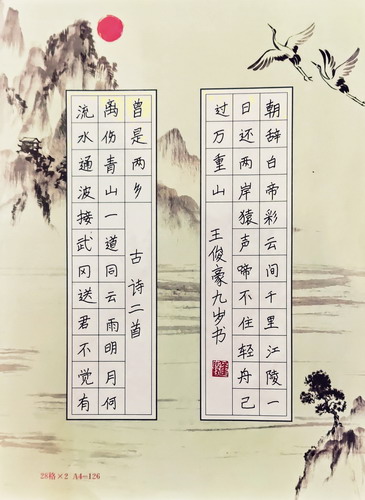 朝辞白帝彩云间千里江陵一
日还两岸猿声啼不住轻舟己
过万重山
王俊豪九岁书
流水通波接武冈送君不觉有
离伤青山一道同云雨明月何
曾是两乡
古诗二首
28格×2 A4-126